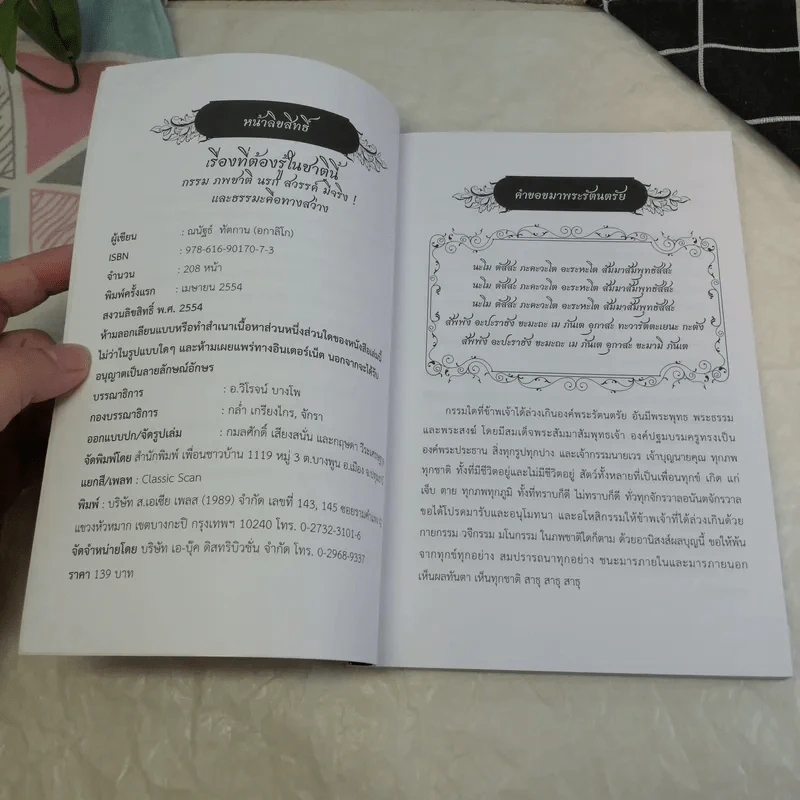 หน้าลิขสิทธิ์
เรื่องที่ต้องรู้ในชาตินี้
กรรม ภพชาติ นรก สวรรค์ มีจริง !
และธรรมะคือทางสว่าง
ผู้เขียน : ณนัฐธ์ ทัตกาน (อกาลิโก)
ISBN : 978-616-90170-7-3
จำนวน : 208 หน้า
พิมพ์ครั้งแรก : เมษายน 2554
สงวนลิขสิทธิ์ พ.ศ. 2554
ห้ามลอกเลียนแบบหรือทำสำเนาเนื้อหาส่วนหนึ่งส่วนใดของหนังสือเล่มนี้
ไม่ว่าในรูปแบบใดๆ และห้ามเผยแพร่ทางอินเตอร์เน็ต นอกจากจะได้รับ
อนุญาตเป็นลายลักษณ์อักษร
บรรณาธิการ : อ.วิโรจน์ บางโพ
กองบรรณาธิการ : กล่ำ เกรียงไกร, จักรา
ออกแบบปก/จัดรูปเล่ม : กมลศักดิ์ เสียงสนั่น และกฤษดา
จัดพิมพ์โดย สำนักพิมพ์ เพื่อนชาวบ้าน 1119 หมู่ 3 ต.บางพูน อ.เมือง
แยกสี/เพลท : Classic Scan
พิมพ์ : บริษัท ส.เอเซีย เพลส (1989) จำกัด เลขที่ 143, 145 ซอยรามคำแหง
แขวงหัวหมาก เขตบางกะปิ กรุงเทพฯ 10240 โทร. 0-2732-3101-6
จัดจำหน่ายโดย บริษัท เอ-บุ๊ค ดิสทริบิวชั่น จำกัด โทร. 0-2968-9337
ราคา 139 บาท
คำขอขมาพระรัตนตรัย
นะโม ตัสสะ ภะคะวะโต อะระหะโต สัมมาสัมพุทธัสสะ
นะโม ตัสสะ ภะคะวะโต อะระหะโต สัมมาสัมพุทธัสสะ
นะโม ตัสสะ ภะคะวะโต อะระหะโต สัมมาสัมพุทธัสสะ
สัพพัง อะปะราธัง ขะมะถะ เม ภันเต อุกาสะ ทะวารัตตะเยนะ กะตัง
สัพพัง อะปะราธัง ขะมะถะ เม ภันเต อุกาสะ ขะมามิ ภันเต
กรรมใดที่ข้าพเจ้าได้ล่วงเกินองค์พระรัตนตรัย อันมีพระพุทธ พระธรรม
และพระสงฆ์ โดยมีสมเด็จพระสัมมาสัมพุทธเจ้า องค์ปฐมบรมครูทรงเป็น
องค์พระประธาน สิ่งทุกรูปทุกปาง และเจ้ากรรมนายเวร เจ้าบุญนายคุณ ทุกภพ
ทุกชาติ ทั้งที่มีชีวิตอยู่และไม่มีชีวิตอยู่ สัตว์ทั้งหลายที่เป็นเพื่อนทุกข์ เกิด แก่
เจ็บ ตาย ทุกภพทุกภูมิ ทั้งที่ทราบก็ดี ไม่ทราบก็ดี ทั่วทุกจักรวาลอนันตจักรวาล
ขอได้โปรดมารับและอนุโมทนา และอโหสิกรรมให้ข้าพเจ้าที่ได้ล่วงเกินด้วย
กายกรรม วจีกรรม มโนกรรม ในภพชาติใดก็ตาม ด้วยอานิสงส์ผลบุญนี้ ขอให้พ้น
จากทุกข์ทุกอย่าง สมปรารถนาทุกอย่าง ชนะมารภายในและมารภายนอก
เห็นผลทันตา เห็นทุกชาติ สาธุ สาธุ สาธุ